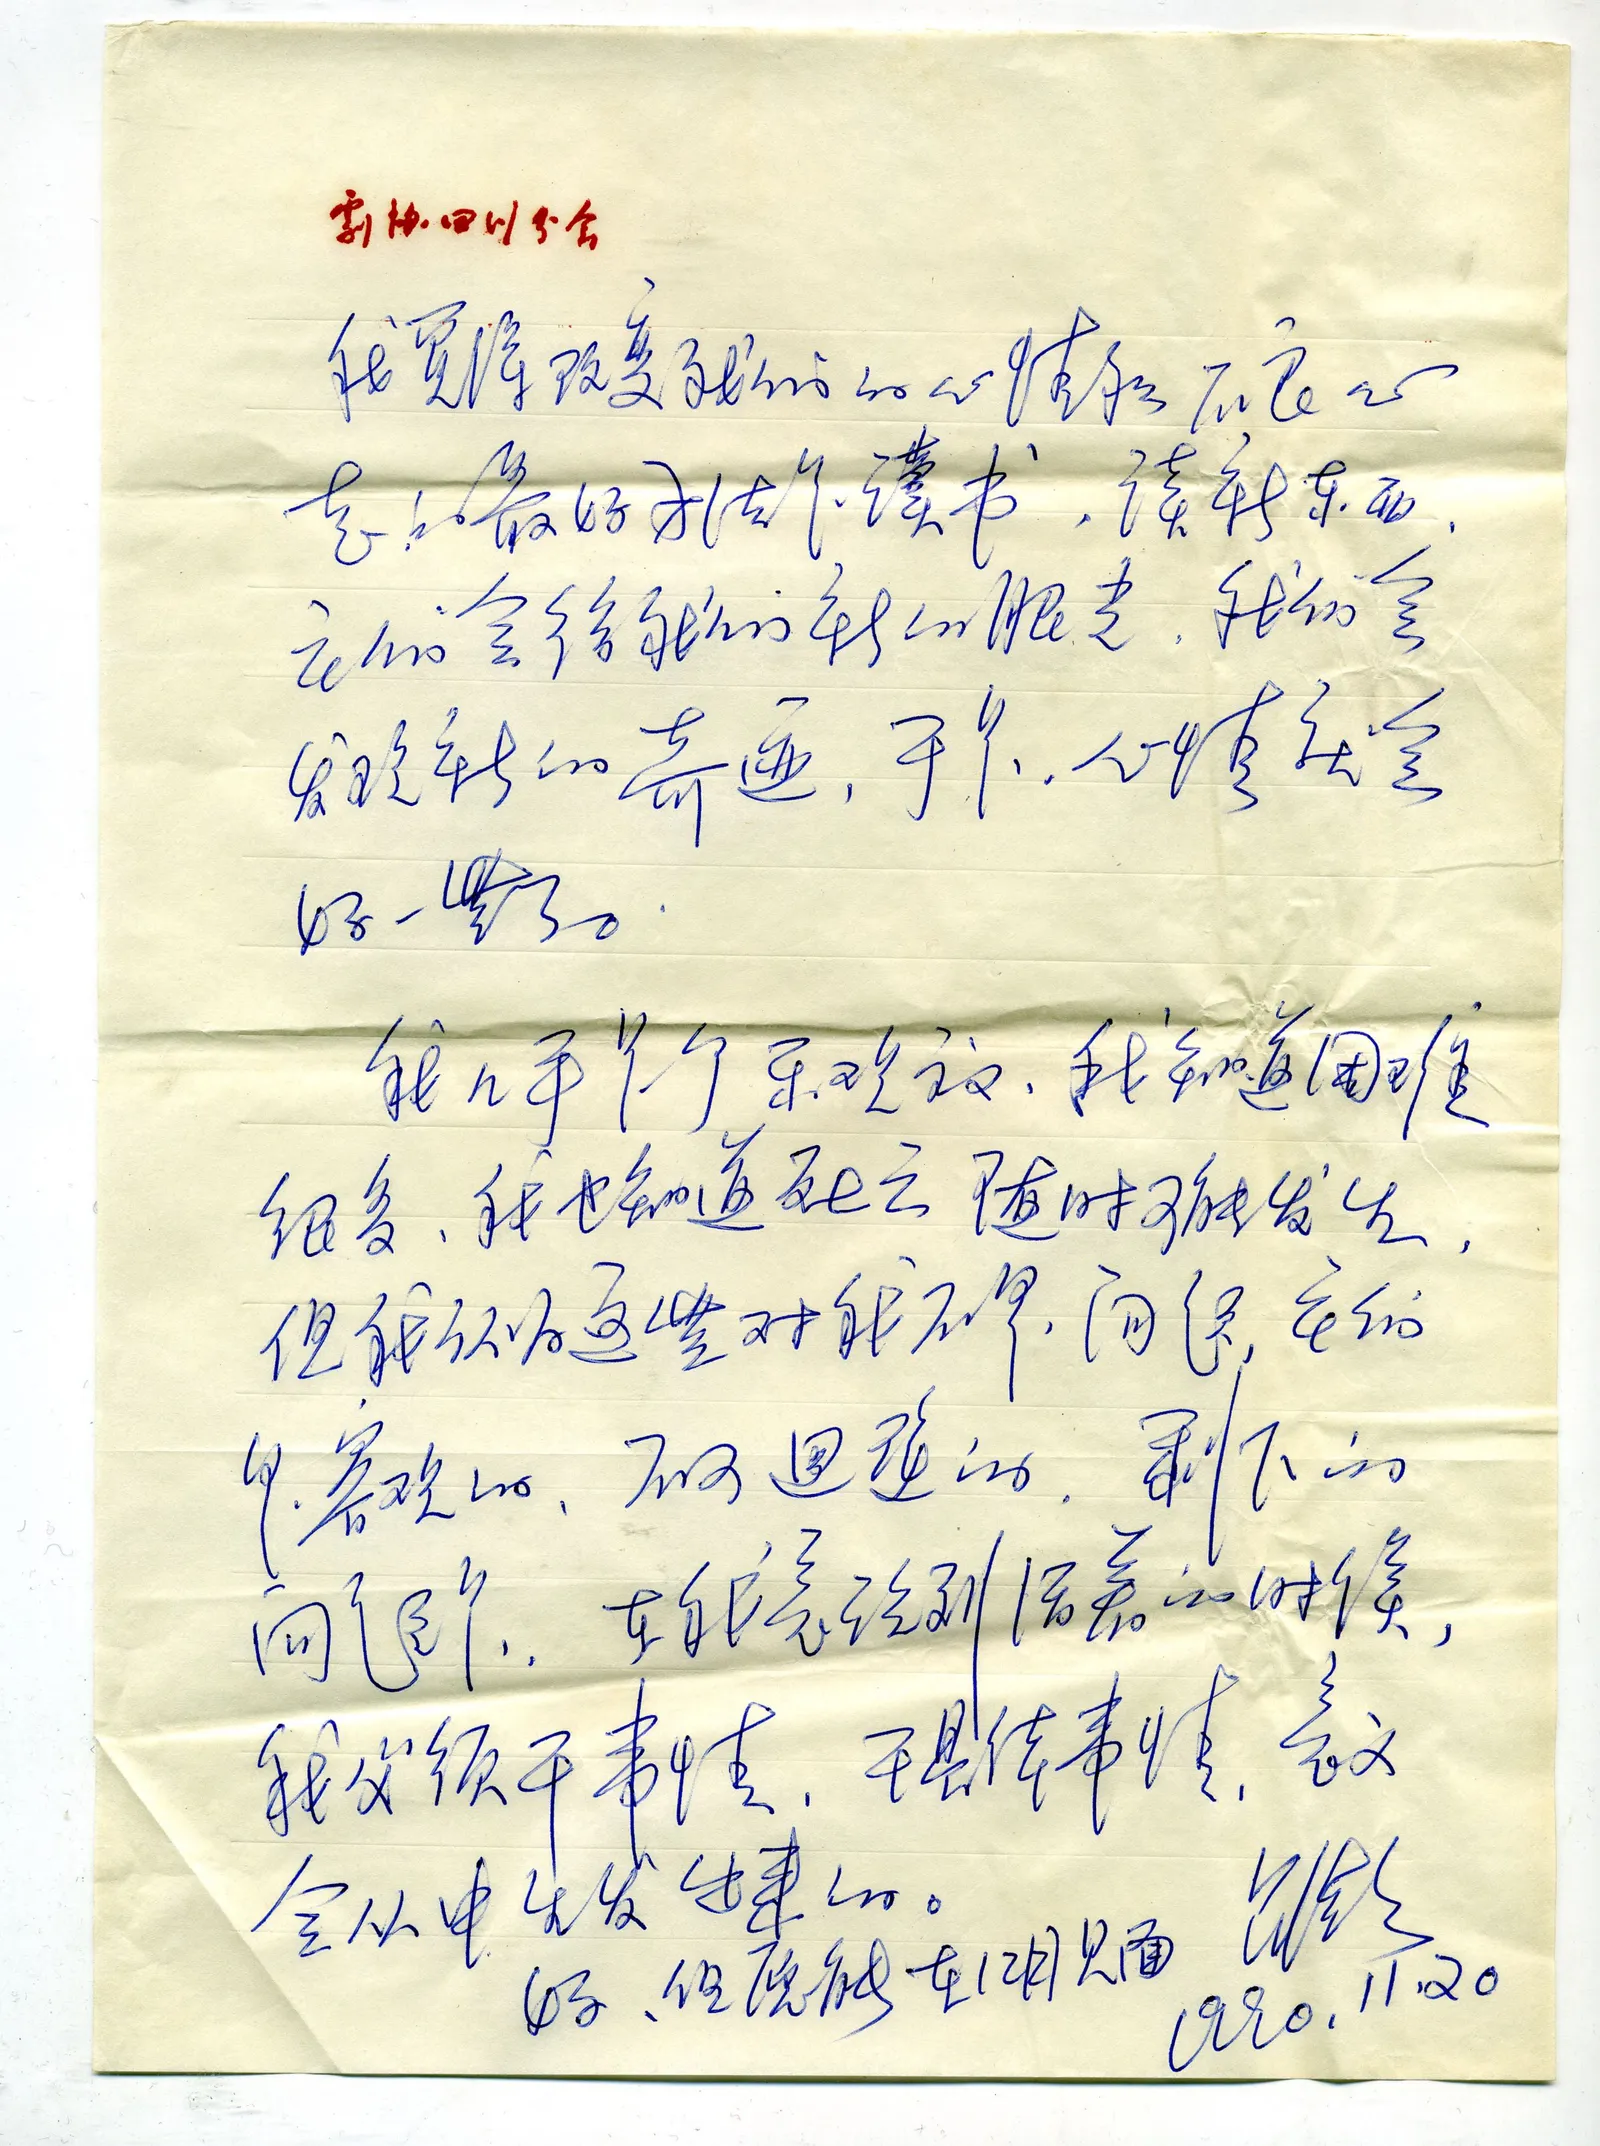 劇协四川分会
我觉得改变我们的心情和不良心
态的最好办法是读书,读新东西,
它们会给我们新的眼光,我们会
发现新的奇迹,于是,心情就会
好一些了。
我几乎是个乐观主义,我知道困难
很多,我也知道死亡随时可能发生,
但我认为这些对我不是问题,它们
是客观的、不可回避的,剩下的
问题是,在我意识到活着的时候,
我必须干事情,干具体事情,意义
会从中生发出来的。
好,但愿能在12月见面
1990.11.20